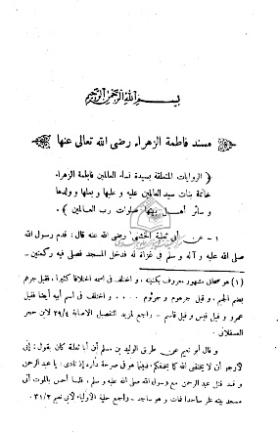 بسم الله الرحمن الرحيم
مسند فاطمة الزهراء رضى الله تعالى عنها
﴿ الروايات المتعلقة بسيدة نساء العالمين فاطمة الزهراء
خاتمة بنات سيد العالمين عليه و عليها و بعلها و ولدها
و سائر أهل بيتها صلوات رب العالمين ﴾ .
١ – عن أبى ثعلبة الخشنى رضى الله عنه قال : قدم رسول الله
صلى الله عليه و آله و سلم فى غزاة له فدخل المسجد فصلى فيه ركعتين ـ
(١) هو صحابى مشهور معروف بكنيته ، و اختلف فى اسمه اختلافا كثيرا ، فقيل جرهم
بضم الجيم ، و قيل جرهوم و جرثوم .... و اختلف فى اسم أبيه أيضا فقيل
عمرو و قيل قيس و قيل قاسم – راجع لمزيد التفصيل الاصابة ٢٩/٤ لابن حجر
العسقلانى .
و قال أبو نعيم عن طريق الوليد بن مسلم أن أبا ثعلبة كان يقول : إنى
لأرجو أن لا يخنقنى الله كما يخنقكم ، فبينما هو فى صرحة داره إذ نادى : يا عبد الرحمن
و قد قتل عبد الرحمن مع رسول الله صلى الله عليه و سلم ، فلما أحس بالموت أتى
مسجد بيته فخر ساجدا فمات و هو ساجد – راجع حلية الأولياء لأبى نعيم ٣١/٢ .